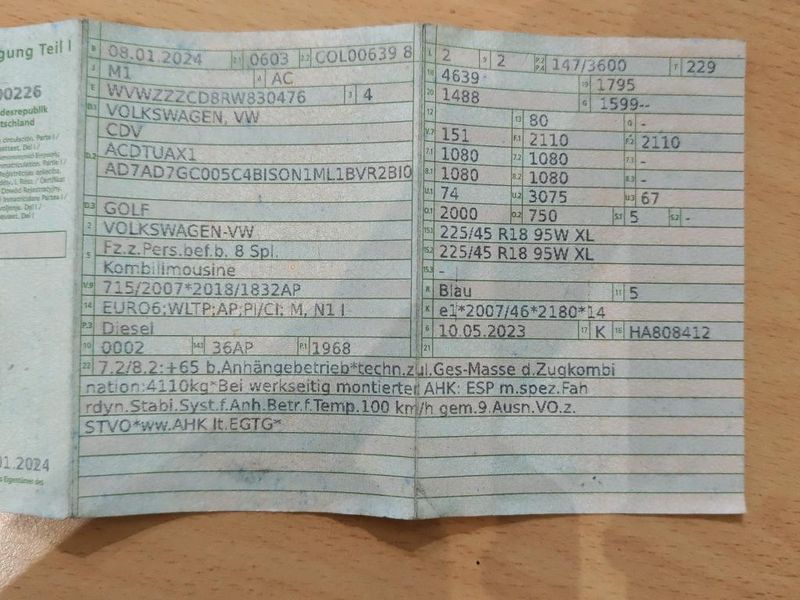 gung Teil I
00226
desrepublik
tschland
01.2024
B 08.01.2024 2.1 0603 2.2 COL00639 8
J M1 4 AC
E WVWZZZCD8RW830476 3 4
D.1 VOLKSWAGEN, VW
CDV
D.2 ACDTUAX1
AD7AD7GC005C4BISON1ML1BVR2BI0
D.3 GOLF
2 VOLKSWAGEN-VW
5 Fz.z.Pers.bef.b. 8 Spl.
Kombilimousine
V.9 715/2007*2018/1832AP
14 EURO6;WLTP;AP;PI/CI; M, N1 I
P.3 Diesel
10 0002 14.1 36AP P.1 1968
L 2 9 2 P.2 P.4 147/3600 T 229
18 4639 19 1795
20 1488 G 1599--
12 - 13 80 Q -
V.7 151 F.1 2110 F.2 2110
7.1 1080 7.2 1080 7.3 -
8.1 1080 8.2 1080 8.3 -
U.1 74 U.2 3075 U.3 67
O.1 2000 O.2 750 S.1 5 S.2 -
15.1 225/45 R18 95W XL
15.2 225/45 R18 95W XL
15.3 -
R Blau 11 5
K e1*2007/46*2180*14
6 10.05.2023 17 K 16 HA808412
21
22 7.2/8.2:+65 b.Anhängebetrieb*techn.zul.Ges-Masse d.Zugkombi
nation:4110kg*Bei werkseitig montierter AHK: ESP m.spez.Fah
rdyn.Stabi.Syst.f.Anh.Betr.f.Temp.100 km/h gem.9.Ausn.VO.z.
STVO*ww.AHK lt.EGTG*